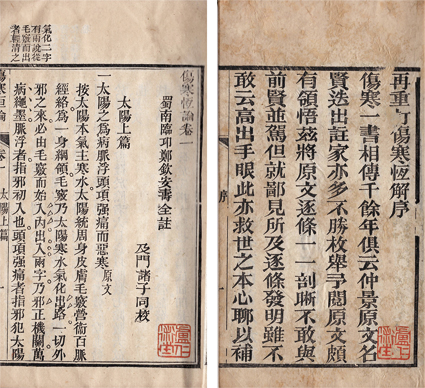 再重訂傷寒恆解序
傷寒一書相傳千餘年俱云仲景原文名
賢迭出註家亦多不勝枚舉予閱原文頗
有領悟茲將原文逐條一一剖晰不敢與
前賢並駕但就鄙見所及逐條發明雖不
敢云高出手眼此亦救世之本心聊以補
序
傷寒恆論卷一
蜀南臨邛鄭欽安壽全註
及門諸子同校
太陽上篇
一太陽之為病脈浮頭項強痛而惡寒原文
按太陽本氣主寒水太陽統周身皮膚毛竅營衛百脈
經絡為一身綱領毛竅乃太陽寒水氣化出路一切外
邪之來必由毛竅而始入內出入兩字乃邪正機關萬
病繩墨脈浮者指邪初入也頭項強痛者指邪犯太陽
氣化二字
有兩說從
毛竅而出
者輕清之
傷寒恆論 卷一 太陽上篇 一